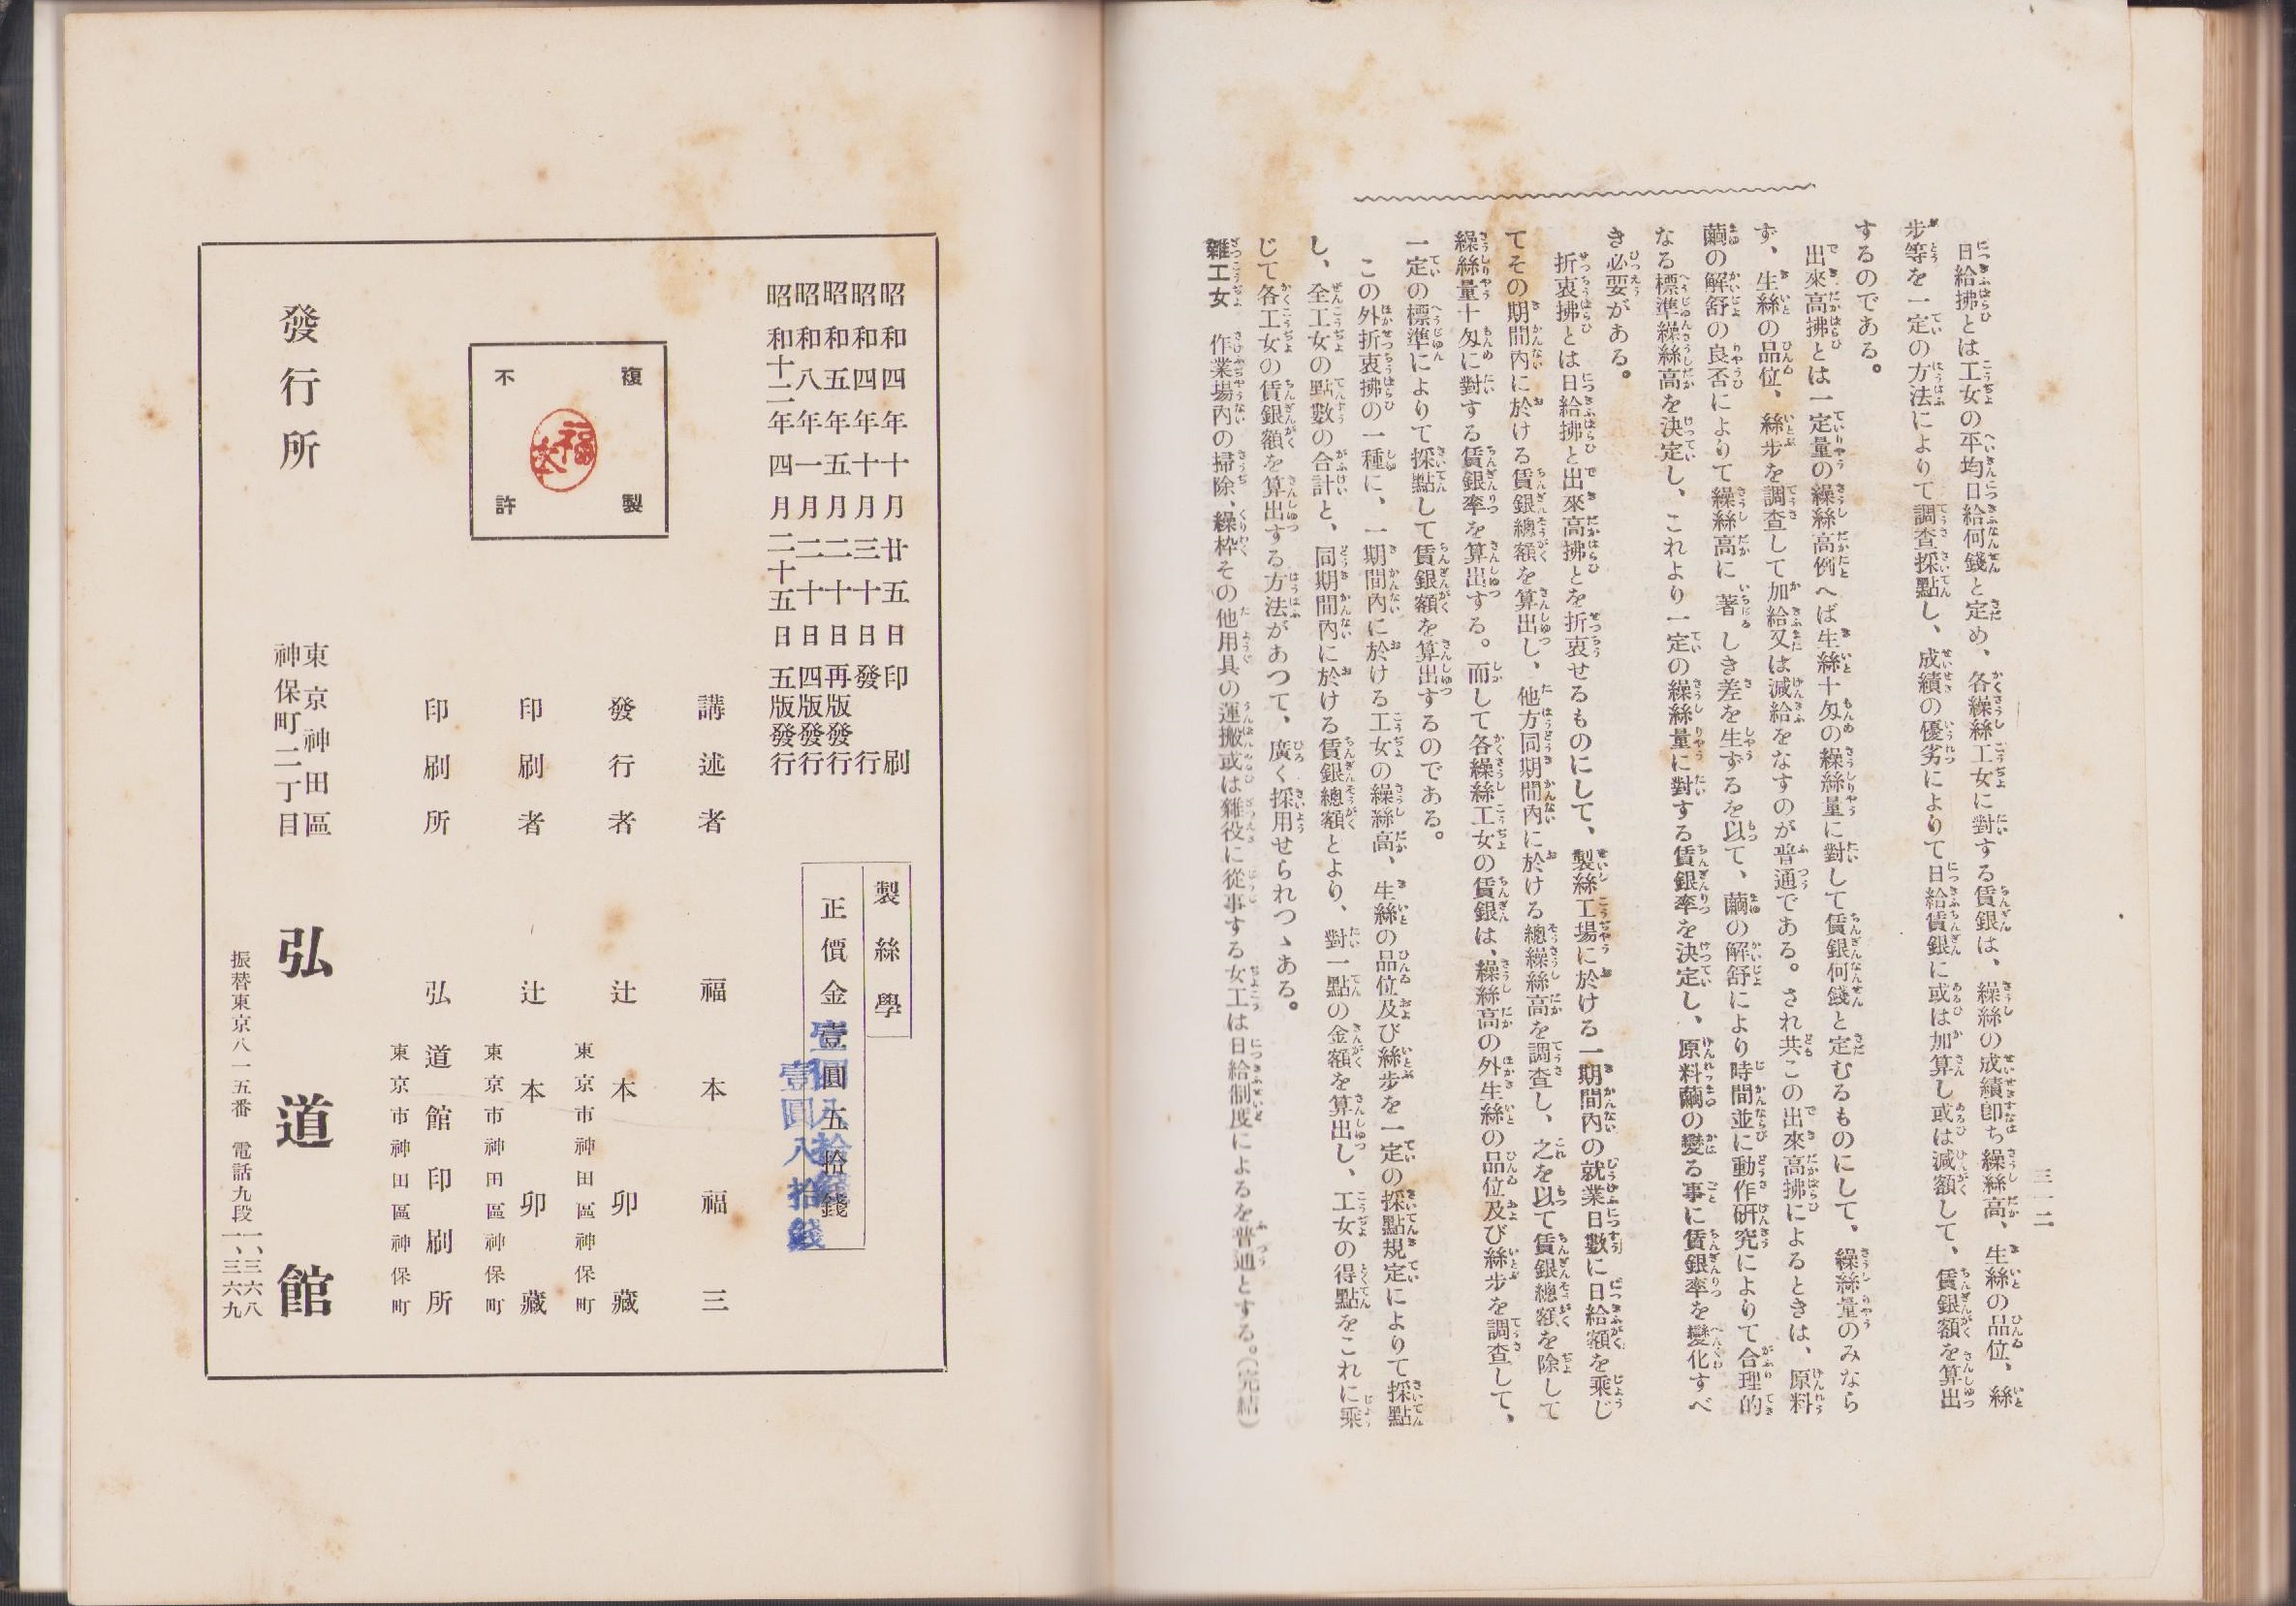 三一二
日給拂とは工女の平均日給何錢と定め、各繰絲工女に對する賃銀は、繰絲の成績卽ち繰絲高、生絲の品位、絲
步等を一定の方法によりて調査採點し、成績の優劣によりて日給賃銀に或は加算し或は減額して、賃銀額を算出
するのである。
出來高拂とは一定量の繰絲高例へば生絲十匁の繰絲量に對して賃銀何錢と定むるものにして、繰絲量のみなら
ず、生絲の品位、絲步を調査して加給又は減給をなすのが普通である。され共この出來高拂によるときは、原料
繭の解舒の良否によりて繰絲高に著しき差を生ずるを以て、繭の解舒により時間並に動作硏究によりて合理的
なる標準繰絲高を決定し、これより一定の繰絲量に對する賃銀率を決定し、原料繭の變る事に賃銀率を變化すべ
き必要がある。
折衷拂とは日給拂と出來高拂とを折衷せるものにして、製絲工場に於ける一期間內の就業日數に日給額を乘じ
てその期間內に於ける賃銀總額を算出し、他方同期間內に於ける總繰絲高を調査し、之を以て賃銀總額を除して
繰絲量十匁に對する賃銀率を算出する。而して各繰絲工女の賃銀は、繰絲高の外生絲の品位及び絲步を調査して、
一定の標準によりて採點して賃銀額を算出するのである。
この外折衷拂の一種に、一期間內に於ける工女の繰絲高、生絲の品位及び絲步を一定の採點規定によりて採點
し、全工女の點數の合計と、同期間內に於ける賃銀總額とより、對一點の金額を算出し、工女の得點をこれに乘
じて各工女の賃銀額を算出する方法があつて、廣く採用せられつゝある。
雜工女　作業場內の掃除、繰枠その他用具の運搬或は雜役に從事する女工は日給制度によるを普通とする。(完結)
昭和四年十月廿五日印刷
昭和四年十月三十日發行
昭和五年五月二十日再版發行
昭和八年一月二十日四版發行
昭和十二年四月二十五日五版發行
製絲學
正價金壹圓五拾錢
壹圓八拾錢
壹圓八拾錢
複製
不許
福本
講述者　福本福三
發行者　辻本卯藏
東京市神田區神保町
印刷者　辻本卯藏
東京市神田區神保町
印刷所　弘道館印刷所
東京市神田區神保町
發行所
東京神田區
神保町二丁目
弘道館
振替東京八一五番　電話九段一、三六八
一、三六九